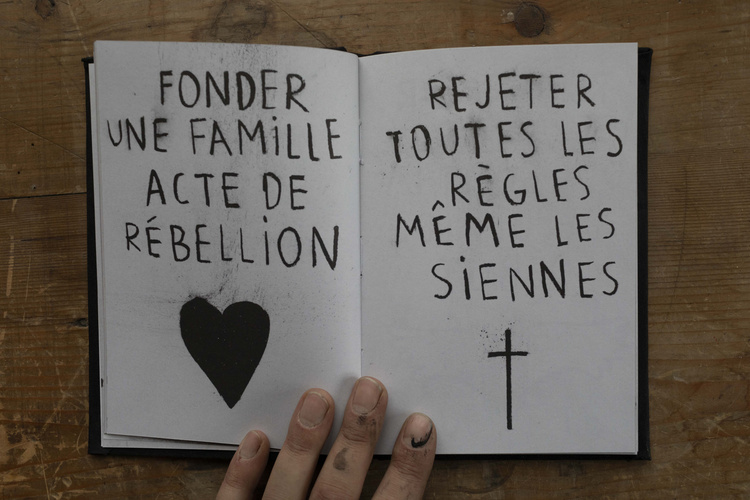 FONDER
UNE FAMiLLE
ACTE DE
RÉBELLiON
REJETER
TOUTES LES
RÈGLES
MÊME LES
SiENNES